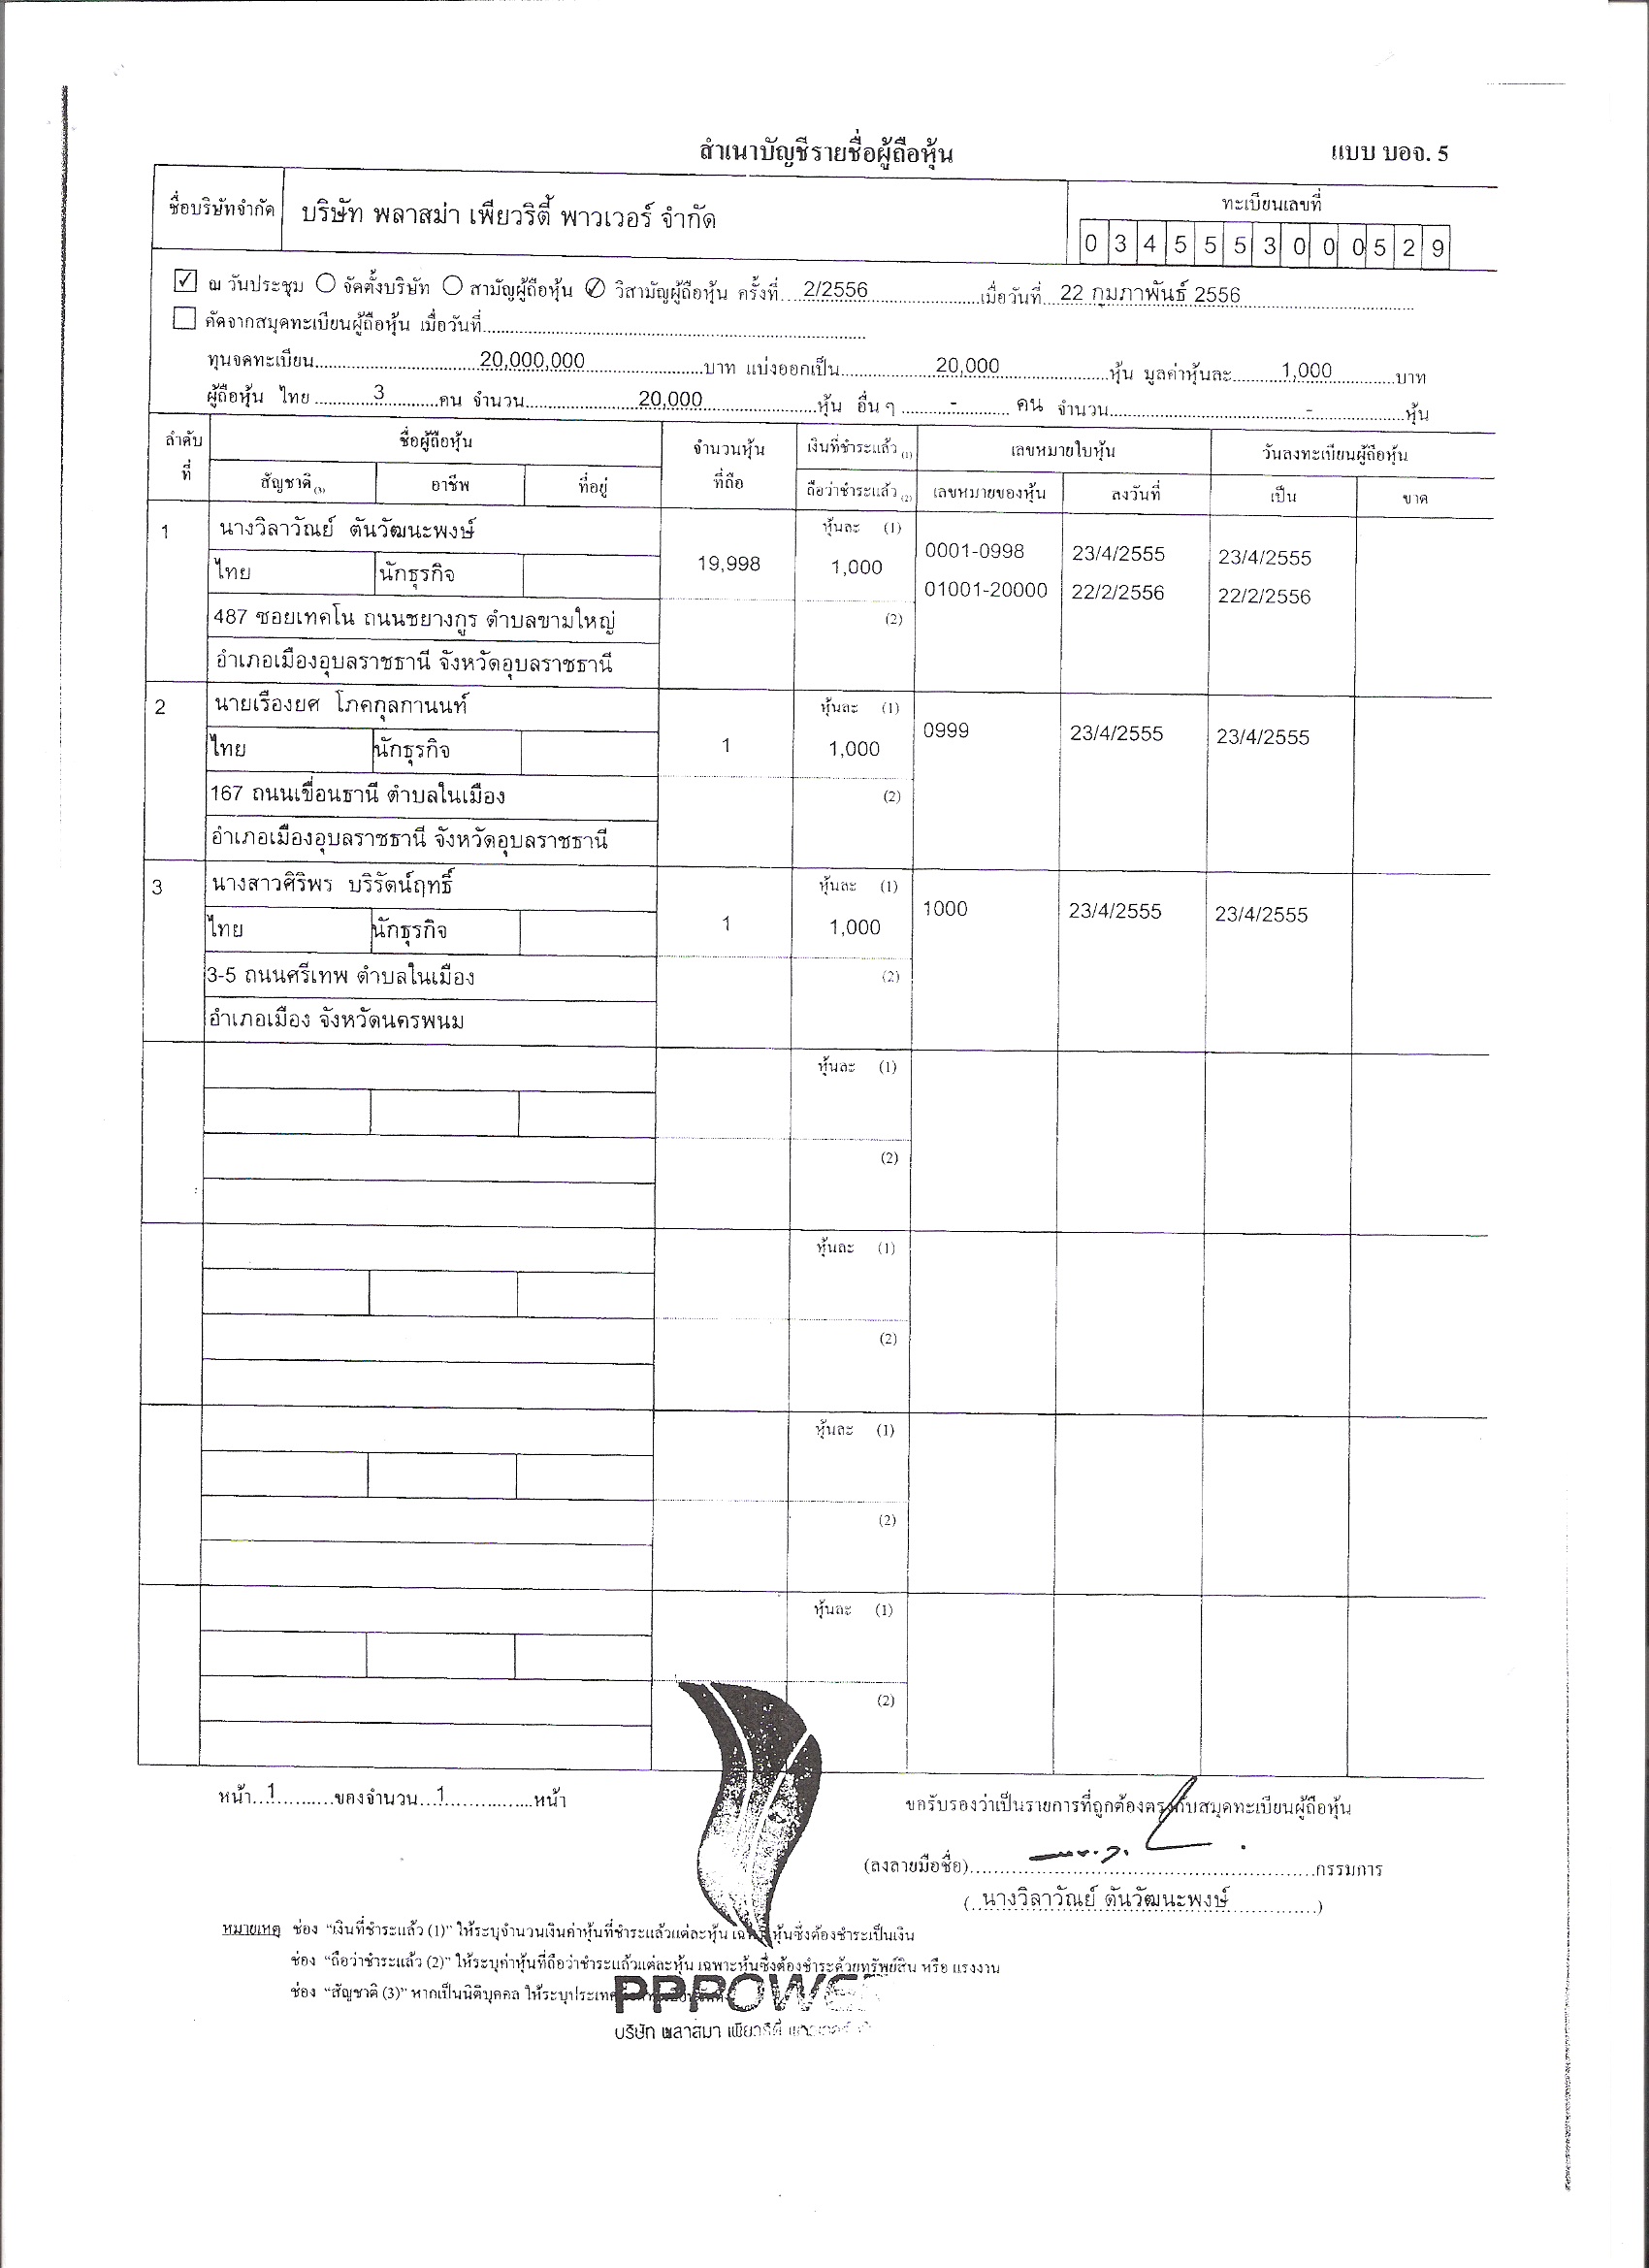 สำเนาบัญชีรายชื่อผู้ถือหุ้น
แบบ บอจ. 5
ชื่อบริษัทจำกัด บริษัท พลาสม่า เพียวริตี้ พาวเวอร์ จำกัด
ทะเบียนเลขที่
0 3 4 5 5 5 3 0 0 0 5 2 9
ณ วันประชุม จัดตั้งบริษัท สามัญผู้ถือหุ้น วิสามัญผู้ถือหุ้น ครั้งที่ 2/2556 เมื่อวันที่ 22 กุมภาพันธ์ 2556
คัดจากสมุดทะเบียนผู้ถือหุ้น เมื่อวันที่
ทุนจดทะเบียน 20,000,000 บาท แบ่งออกเป็น 20,000 หุ้น มูลค่าหุ้นละ 1,000 บาท
ผู้ถือหุ้น ไทย 3 คน จำนวน 20,000 หุ้น อื่น ๆ - คน จำนวน - หุ้น
ลำดับที่ ชื่อผู้ถือหุ้น จำนวนหุ้นที่ถือ เงินที่ชำระแล้ว (1) เลขหมายใบหุ้น วันลงทะเบียนผู้ถือหุ้น
สัญชาติ (3) อาชีพ ที่อยู่ ถือว่าชำระแล้ว (2) เลขหมายของหุ้น ลงวันที่ เป็น ขาด
1 นางวิลาวัณย์ ตันวัฒนะพงษ์ หุ้นละ (1)
ไทย นักธุรกิจ 19,998 1,000 0001-0998 23/4/2555 23/4/2555
01001-20000 22/2/2556 22/2/2556
487 ซอยเทคโน ถนนชยางกูร ตำบลขามใหญ่ (2)
อำเภอเมืองอุบลราชธานี จังหวัดอุบลราชธานี
2 นายเรืองยศ โภคกุลกานนท์ หุ้นละ (1)
ไทย นักธุรกิจ 1 1,000 0999 23/4/2555 23/4/2555
167 ถนนเขื่อนธานี ตำบลในเมือง (2)
อำเภอเมืองอุบลราชธานี จังหวัดอุบลราชธานี
3 นางสาวศิริพร บริรัตน์ฤทธิ์ หุ้นละ (1)
ไทย นักธุรกิจ 1 1,000 1000 23/4/2555 23/4/2555
3-5 ถนนศรีเทพ ตำบลในเมือง (2)
อำเภอเมือง จังหวัดนครพนม
หุ้นละ (1)
(2)
หุ้นละ (1)
(2)
หุ้นละ (1)
(2)
หุ้นละ (1)
(2)
หน้า 1 ของจำนวน 1 หน้า
ขอรับรองว่าเป็นรายการที่ถูกต้องตรงกับสมุดทะเบียนผู้ถือหุ้น
(ลงลายมือชื่อ) กรรมการ
( นางวิลาวัณย์ ตันวัฒนะพงษ์ )
หมายเหตุ ช่อง “เงินที่ชำระแล้ว (1)” ให้ระบุจำนวนเงินค่าหุ้นที่ชำระแล้วแต่ละหุ้น เฉพาะหุ้นซึ่งต้องชำระเป็นเงิน
ช่อง “ถือว่าชำระแล้ว (2)” ให้ระบุค่าหุ้นที่ถือว่าชำระแล้วแต่ละหุ้น เฉพาะหุ้นซึ่งต้องชำระด้วยทรัพย์สิน หรือ แรงงาน
ช่อง “สัญชาติ (3)” หากเป็นนิติบุคคล ให้ระบุประเทศ
PPPOWE
บริษัท พลาสมา เพียวริตี้